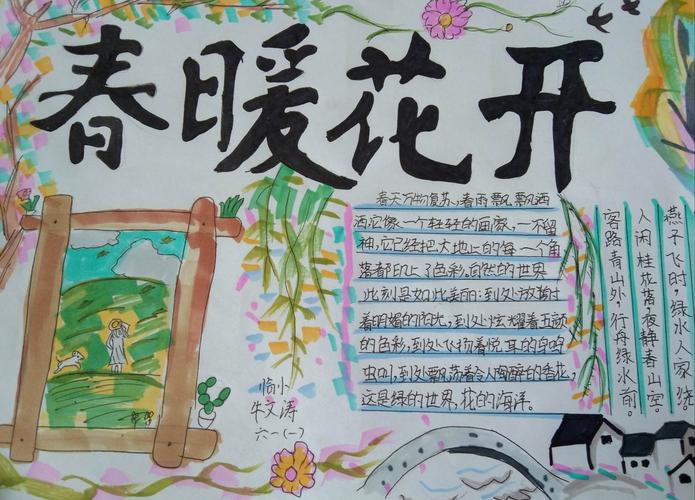 春暖花开
春天万物复苏,春雨飘飘洒
洒,它像一个轻轻的画家,一不留
神,它已经把大地上的每一个角
落都印上了色彩,自然的世界
此刻是如此美丽:到处放射
着明媚的阳光,到处炫耀着五颜
的色彩,到处飞扬着悦耳的鸟鸣
虫叫,到处飘荡着令人陶醉的香花,
这是绿的世界,花的海洋。
燕子飞时,绿水人家绕。
人闲桂花落,夜静春山空
客路青山外,行舟绿水前。
临小
牛文涛
六一(一)